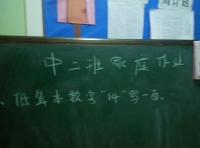 中二班家庭作业
、低算本数字"14"写一面。